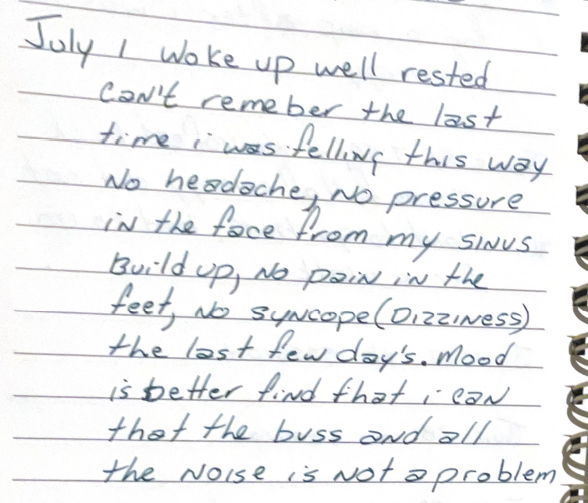 July 1 woke up well rested
can't remeber the last
time i was felling this way
No headache, No pressure
in the face from my sinus
Build up, No pain in the
feet, No syncope (Dizziness)
the last few day's. Mood
is better find that i can
that the buss and all
the noise is not a problem